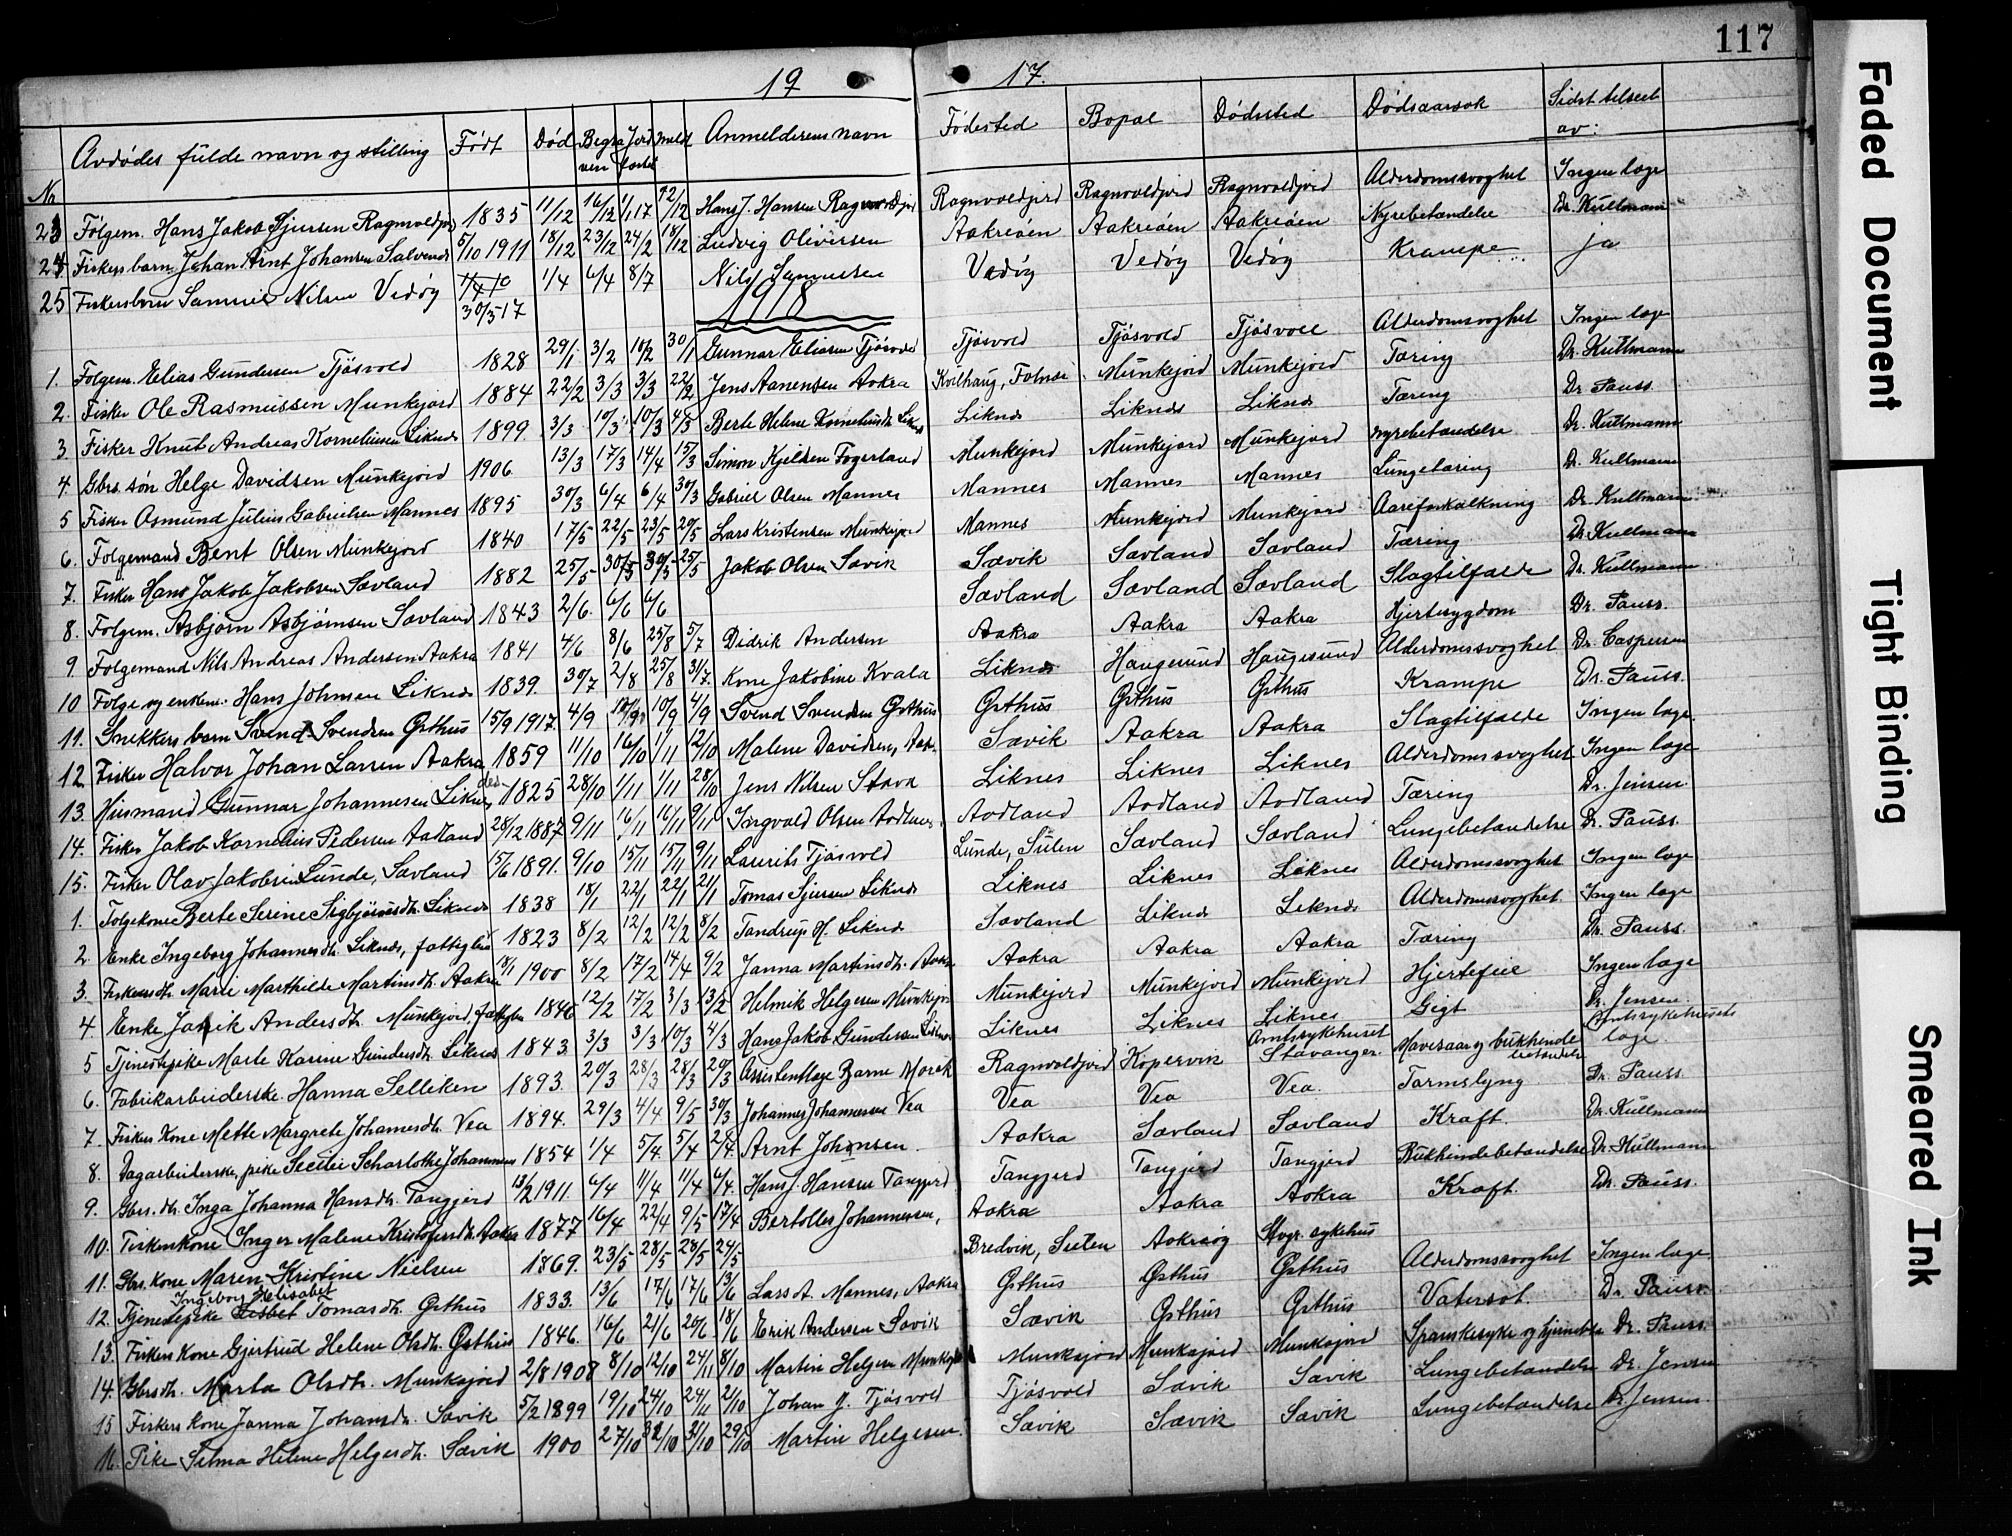 117
19 17.
Nr Avdødes fulde navn og stilling Født Død Begra ven Jord fæstet meldt Anmelderens navn Fødested Bopæl Dødssted Dødsaarsak Sidst tilseet av:
23 Følgem. Hans Jakob Sjursen Ragnvoldjord 1835 11/12 16/12 1/1 17 12/12 Hans J. Hansen Ragnvoldjord Ragnvoldjord Ragnvoldjord Ragnvoldjord Alderdomssvaghet Ingen læge
24 Fiskers barn Johan Arnt Johansen Salvenes 5/10 1911 18/12 23/12 24/2 18/12 Ludvig Oliversen Aakreøen Aakreøen Aakreøen Nyrebetændelse Dr. Kullmann
25 Fiskersbarn Samuel Nilsen Vedøy 30/5 17 1/4 6/4 8/7 Nils Samuelsen Vedøy Vedøy Vedøy Krampe ja
1918
1. Følgem. Elias Gundersen Tjøsvold 1828 29/1 3/2 10/2 30/1 Gunnar Eliasen Tjøsvold Tjøsvold Tjøsvold Tjøsvold Alderdomssvaghet Ingen læge
2. Fisker Ole Rasmussen Munkejord 1884 22/2 3/3 3/3 22/2 Jens Aanensen Aakra Kvilhaug, Fatnes Munkejord Munkejord Tæring Dr. Kullmann
3 Fisker Knut Andreas Korneliussen Liknes 1899 3/3 10/3 10/3 4/3 Berte Helene Korneliusdt. Liknes Liknes Liknes Liknes Tæring Dr. Pauss
4. Gbrs. søn Helge Davidsen Munkejord 1906 13/3 17/3 14/4 15/3 Simon Kjeldsen Fogerland Munkejord Munkejord Munkejord nyrebetændelse Dr. Kullmann
5 Fisker Osmund Julius Gabrielsen Mannes 1895 30/3 6/4 6/4 30/3 Gabriel Olsen Mannes Mannes Mannes Mannes Lungetæring Dr. Kullmann
6. Følgemand Bent Olsen Munkejord 1840 17/5 22/5 23/5 20/5 Lars Kristensen Munkejord Mannes Munkejord Munkejord Aareforkalkning Dr. Kullmann
7. Fisker Hans Jakob Jakobsen Sævland 1882 25/5 30/5 30/5 25/5 Jakob Olsen Sævik Sævik Sævland Sævland Tæring Dr. Kullmann
8. Følgem. Asbjørn Asbjørnsen Sævland 1843 2/6. 6/6 6/6 Sævland Sævland Sævland Slagtilfælde Dr. Kullmann
9 Følgemand Nils Andreas Andersen Aakra 1841 4/6 8/6 25/8 5/7 Didrik Andersen Aakra Aakra Aakra Hjertesygdom Dr. Pauss.
10 Følge og enkem. Hans Johnsen Liknes 1839. 30/7 2/8 25/8 31/7. Kone Jakobine Kvala Liknes Haugesund Haugesund Alderdomssvaghet Dr. Caspersen
11. Snekkers barn Svend Svendsen Østhus 15/9 1917 4/9 10/9 10/9 4/9 Svend Svendsen Østhus Østhus Østhus Østhus Krampe Dr. Pauss.
12. Fisker Halvor Johan Larsen Aakra 1859 11/10 16/10 1/11 12/10 Malene Davidsen, Aak. Sævik Aakra Aakra Slagtilfælde Ingen læge.
13. Husmand Gunnar Johannesen Liknes 1825 28/10 1/11 1/11 28/10 Jens Nilsen Stava Liknes Liknes Liknes Alderdomssvaghet Ingen læge
14. Fisker Jakob Kornelius Pedersen Aadland 28/12 1887 9/11 16/11 16/11 9/11 Ingvald Olsen Aadland. Aadland Aadland Aadland Tæring Dr. Jensen.
15. Fisker Olav Jakobsen Lunde, Sævland 15/6 1891. 9/10 15/11 15/11 9/11 Laurits Tjøsvold Lunde, Sulen Sævland Sævland Lungebetændelse Dr. Pauss.
1. Følgekone Berte Serine Sigbjørnsdt. Liknes 1838 18/1 22/1 22/1 21/1 Tomas Sjursen Liknes Liknes Liknes Liknes Alderdomssvaghet Ingen læge
2. Enke Ingeborg Johannesdt. Liknes, fattiglem 1823 8/2 12/2 12/2 8/2 Tandrup H. Liknes Sævland Liknes Liknes Alderdomssvaghet Ingen læge
3. Fiskersdt. Marie Marthilde Martinsdt. Aakra 18/1 1900 8/2 17/2 14/4 9/2 Janna Martinsdt. Aakra Aakra Aakra Aakra Tæring Dr. Pauss.
4. Enke Janik Andersdt. Munkejord, fattiglem 1846 12/2 17/2 3/3 13/2 Helmik Helgesen Munkejord Munkejord Munkejord Munkejord Hjertefeil Ingen læge
5 Tjenestepike Marte Karine Gundersdt. Liknes 1843. 3/3 3/3 10/3 4/3 Hans Jakob Gundersen Liknes Liknes Liknes Liknes Gigt Dr. Jensen.
6. Fabrikarbeiderske Hanna Selliken 1893. 20/3 28/3 28/3 20/3 Assistentlæge Bjarne Morek Ragnvoldjord Kopervik Amtsykehuset Stavanger. Mavesaar og bukhinde betændelse Amtssykehusets læge.
7. Fiskers kone Mette Margrete Johannesdt. Vea 1894. 29/3 4/4 9/5 30/3 Johannes Johannessen Vea Vea Vea Vea. Tarmslyng Dr. Pauss.
8. Dagarbeiderske, pike Secilie Scharlotte Johannesen 1854 1/4 5/4. 5/4 2/4. Arnt Johansen. Aakra Sævland Sævland Kræft. Dr. Kullmann
9. Gbrs. dt. Inga Johanna Hansdt. Tangjerd 13/2 1911. 6/4 11/4 11/4 6/4. Hans J. Hansen Tangjerd Tangjerd Tangjerd Tangjerd Bukhindebetændelse Dr. Kullmann
10. Fiskerkone Inger Malene Kristofersdt. Aakra 1877 16/4 22/4 9/5 17/4 Bertolles Johannesen, Aakra Aakra Aakra Kræft. Dr. Pauss.
11. Gbrs. kone Maren Kristine Nielsen 1869. 23/5 28/5 28/5 24/5 Bredvik, Sulen Aakreøy Stvgr. sykehus
12. Tjenestepike Ingeborg Helisabet Lisbet Tomasdt. Østhus 1833. 13/6 17/6 17/6 13/6 Lars A. Mannes, Aakra Østhus Østhus Østhus Alderdomssvaghet Ingen læge.
13. Fiskers kone Gjertrud Helene Olsdt. Østhus 1846. 16/6 21/6 20/6 18/6 Erik Andersen Sævik Sævik Østhus Østhus Vatersot. Dr. Pauss.
14. Gbrsdt. Marta Olsdt. Munkajord 2/8 1908 8/10 12/10 24/11 8/10 Martin Helgesen Munkajord Munkajord Munkajord Munkajord Spanskesyke og hjernebet. Dr. Pauss.
15 Fiskers kone Janna Johansdt. Sævik 5/2 1899 19/10 24/10 24/11 21/10 Johan J. Tjøsvold Tjøsvold Sævik Sævik Lungebetændelse Dr. Jensen
16. Pike Selma Helene Helgesdt. Sævik 1900 27/10 31/10 31/10 29/10 Martin Helgesen. Sævik Sævik Sævik Lungebetændelse Dr. Jensen.
Faded Document
Tight Binding
Smeared Ink